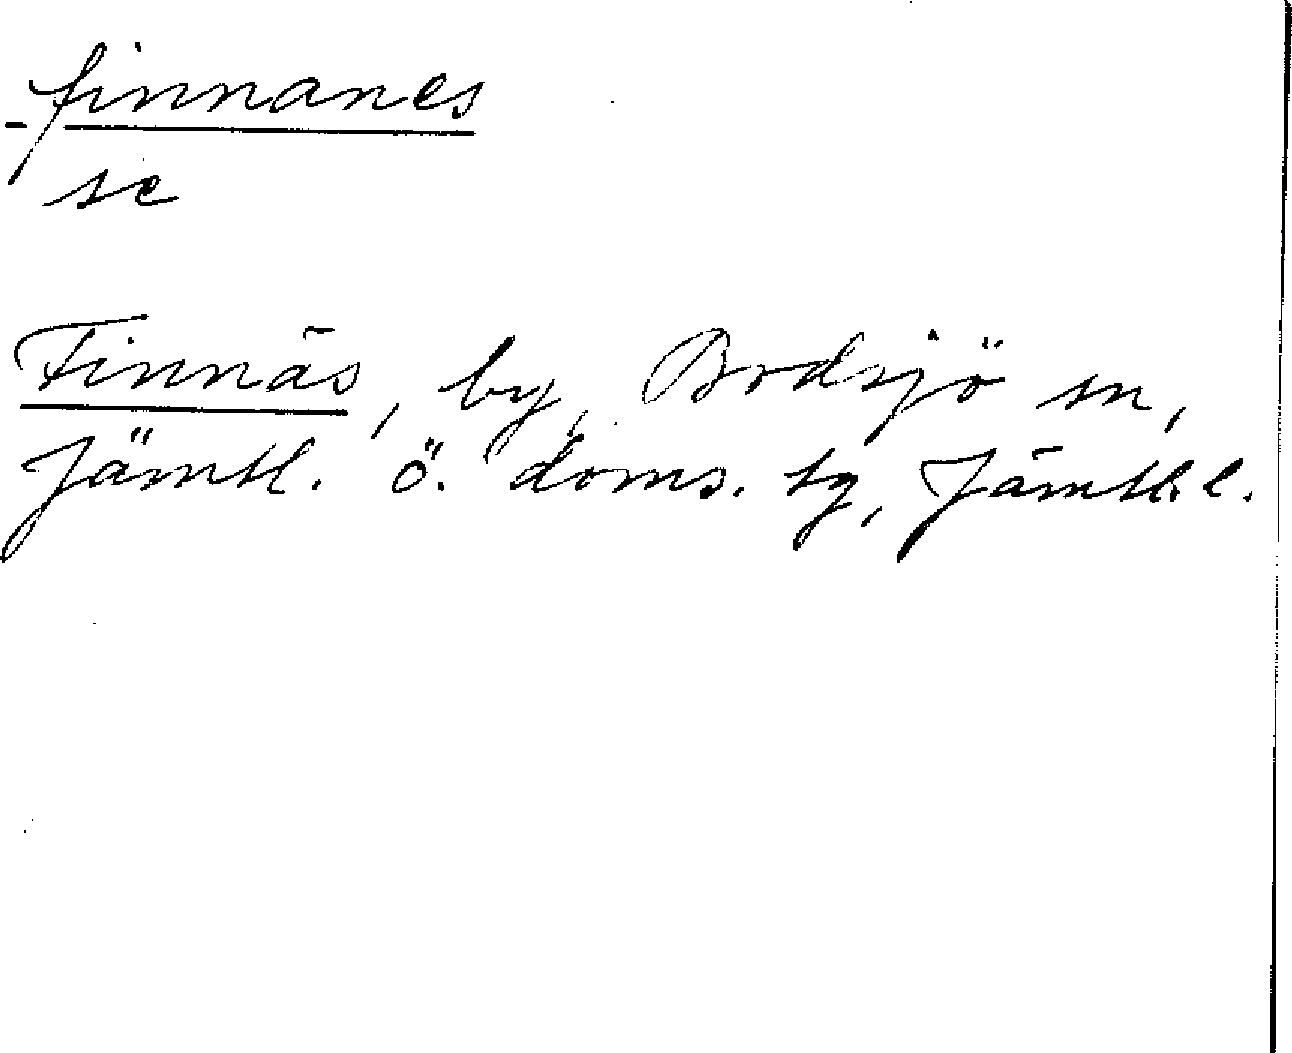 finnanes
se
Finnäs, by, Bodsjö sn,
Jämtl. ö. doms. tg, Jämtl. l.